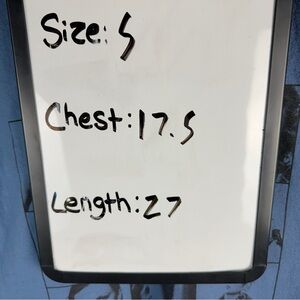 Size: S
Chest: 17.5
Length: 27